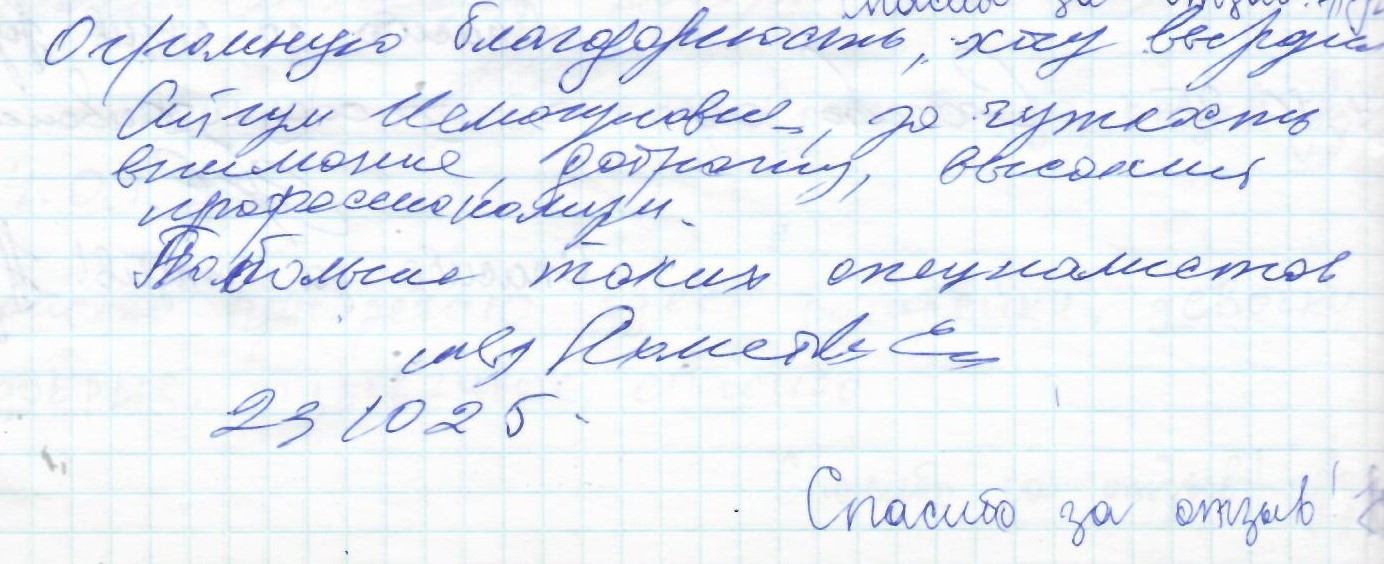 за отзыв!
Огромную благодарность, хочу выразить
за чуткость
внимание, доброту, высокий
профессионализм.
Побольше таких специалистов
23 10 25.
Спасибо за отзыв!